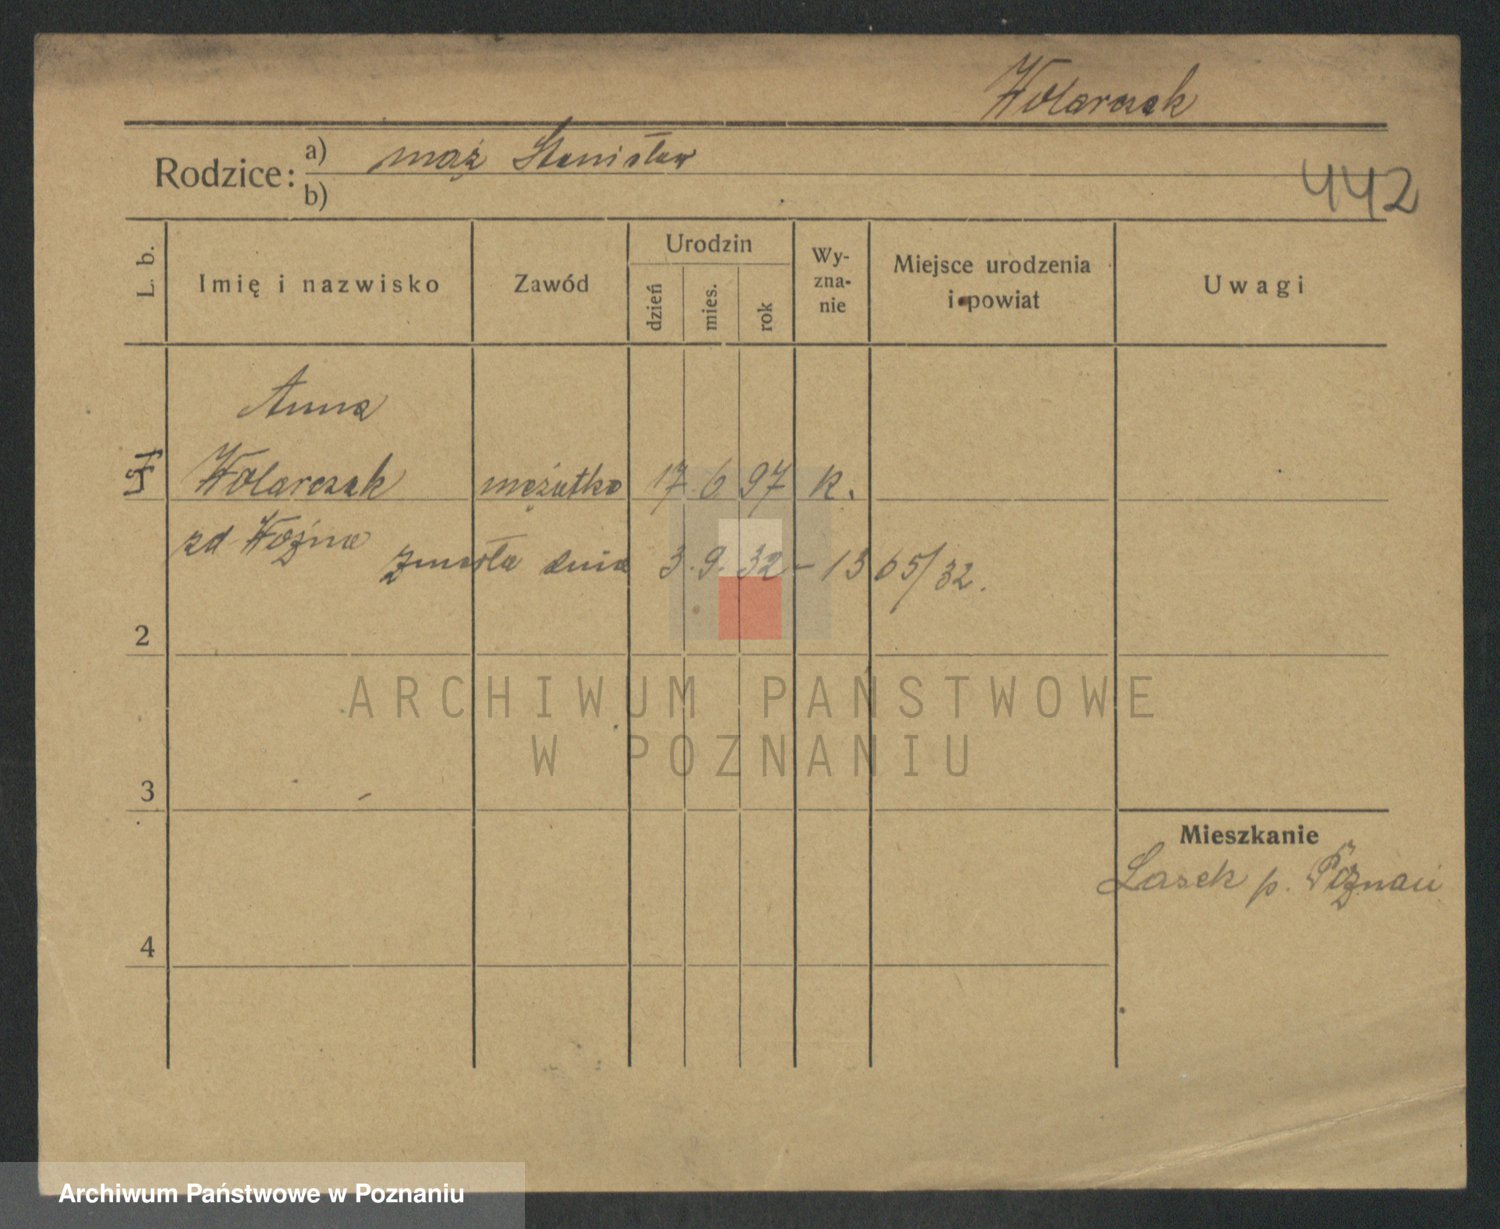 Wolarczak
Rodzice: a) mąż Stanisław
b)
442
L. b.
Imię i nazwisko
Zawód
Urodzin
dzień
mies.
rok
Wy-
zna-
nie
Miejsce urodzenia
i powiat
Uwagi
Anna
Wolarczak mężatka 17. 6 97 k.
zd Woźna
zmarła dnia 3. 9. 32 - 1365/32.
2
3
4
Mieszkanie
Lasek p. Poznań
ARCHIWUM PAŃSTWOWE
W POZNANIU
Archiwum Państwowe w Poznaniu